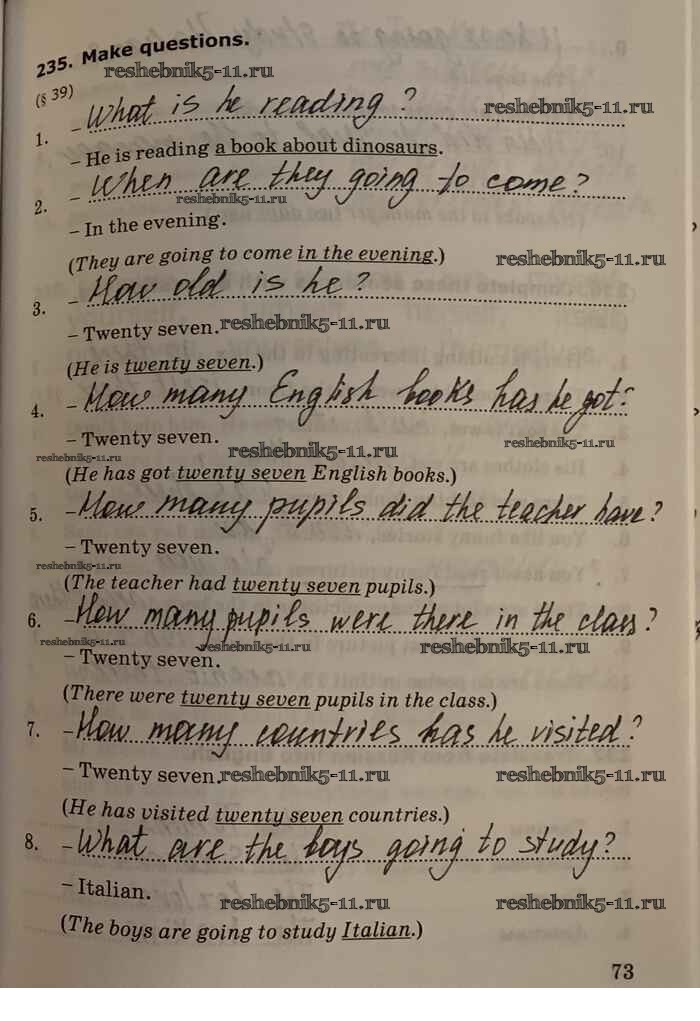 235. Make questions.
reshebnik5-11.ru
(§ 39)
What is he reading?
reshebnik5-11.ru
1. –
– He is reading a book about dinosaurs.
– When are they going to come?
reshebnik5-11.ru
2.
– In the evening.
(They are going to come in the evening.)
reshebnik5-11.ru
– How old is he?
3.
– Twenty seven.
reshebnik5-11.ru
(He is twenty seven.)
– How many English books has he got?
4.
– Twenty seven.
reshebnik5-11.ru
reshebnik5-11.ru
reshebnik5-11.ru
(He has got twenty seven English books.)
– How many pupils did the teacher have?
5.
– Twenty seven.
reshebnik5-11.ru
(The teacher had twenty seven pupils.)
6. – How many pupils were there in the class?
reshebnik5-11.ru
reshebnik5-11.ru
reshebnik5-11.ru
– Twenty seven.
(There were twenty seven pupils in the class.)
7. – How many countries has he visited?
– Twenty seven.
reshebnik5-11.ru
reshebnik5-11.ru
(He has visited twenty seven countries.)
8. – What are the boys going to study?
– Italian.
reshebnik5-11.ru
reshebnik5-11.ru
(The boys are going to study Italian.)
73